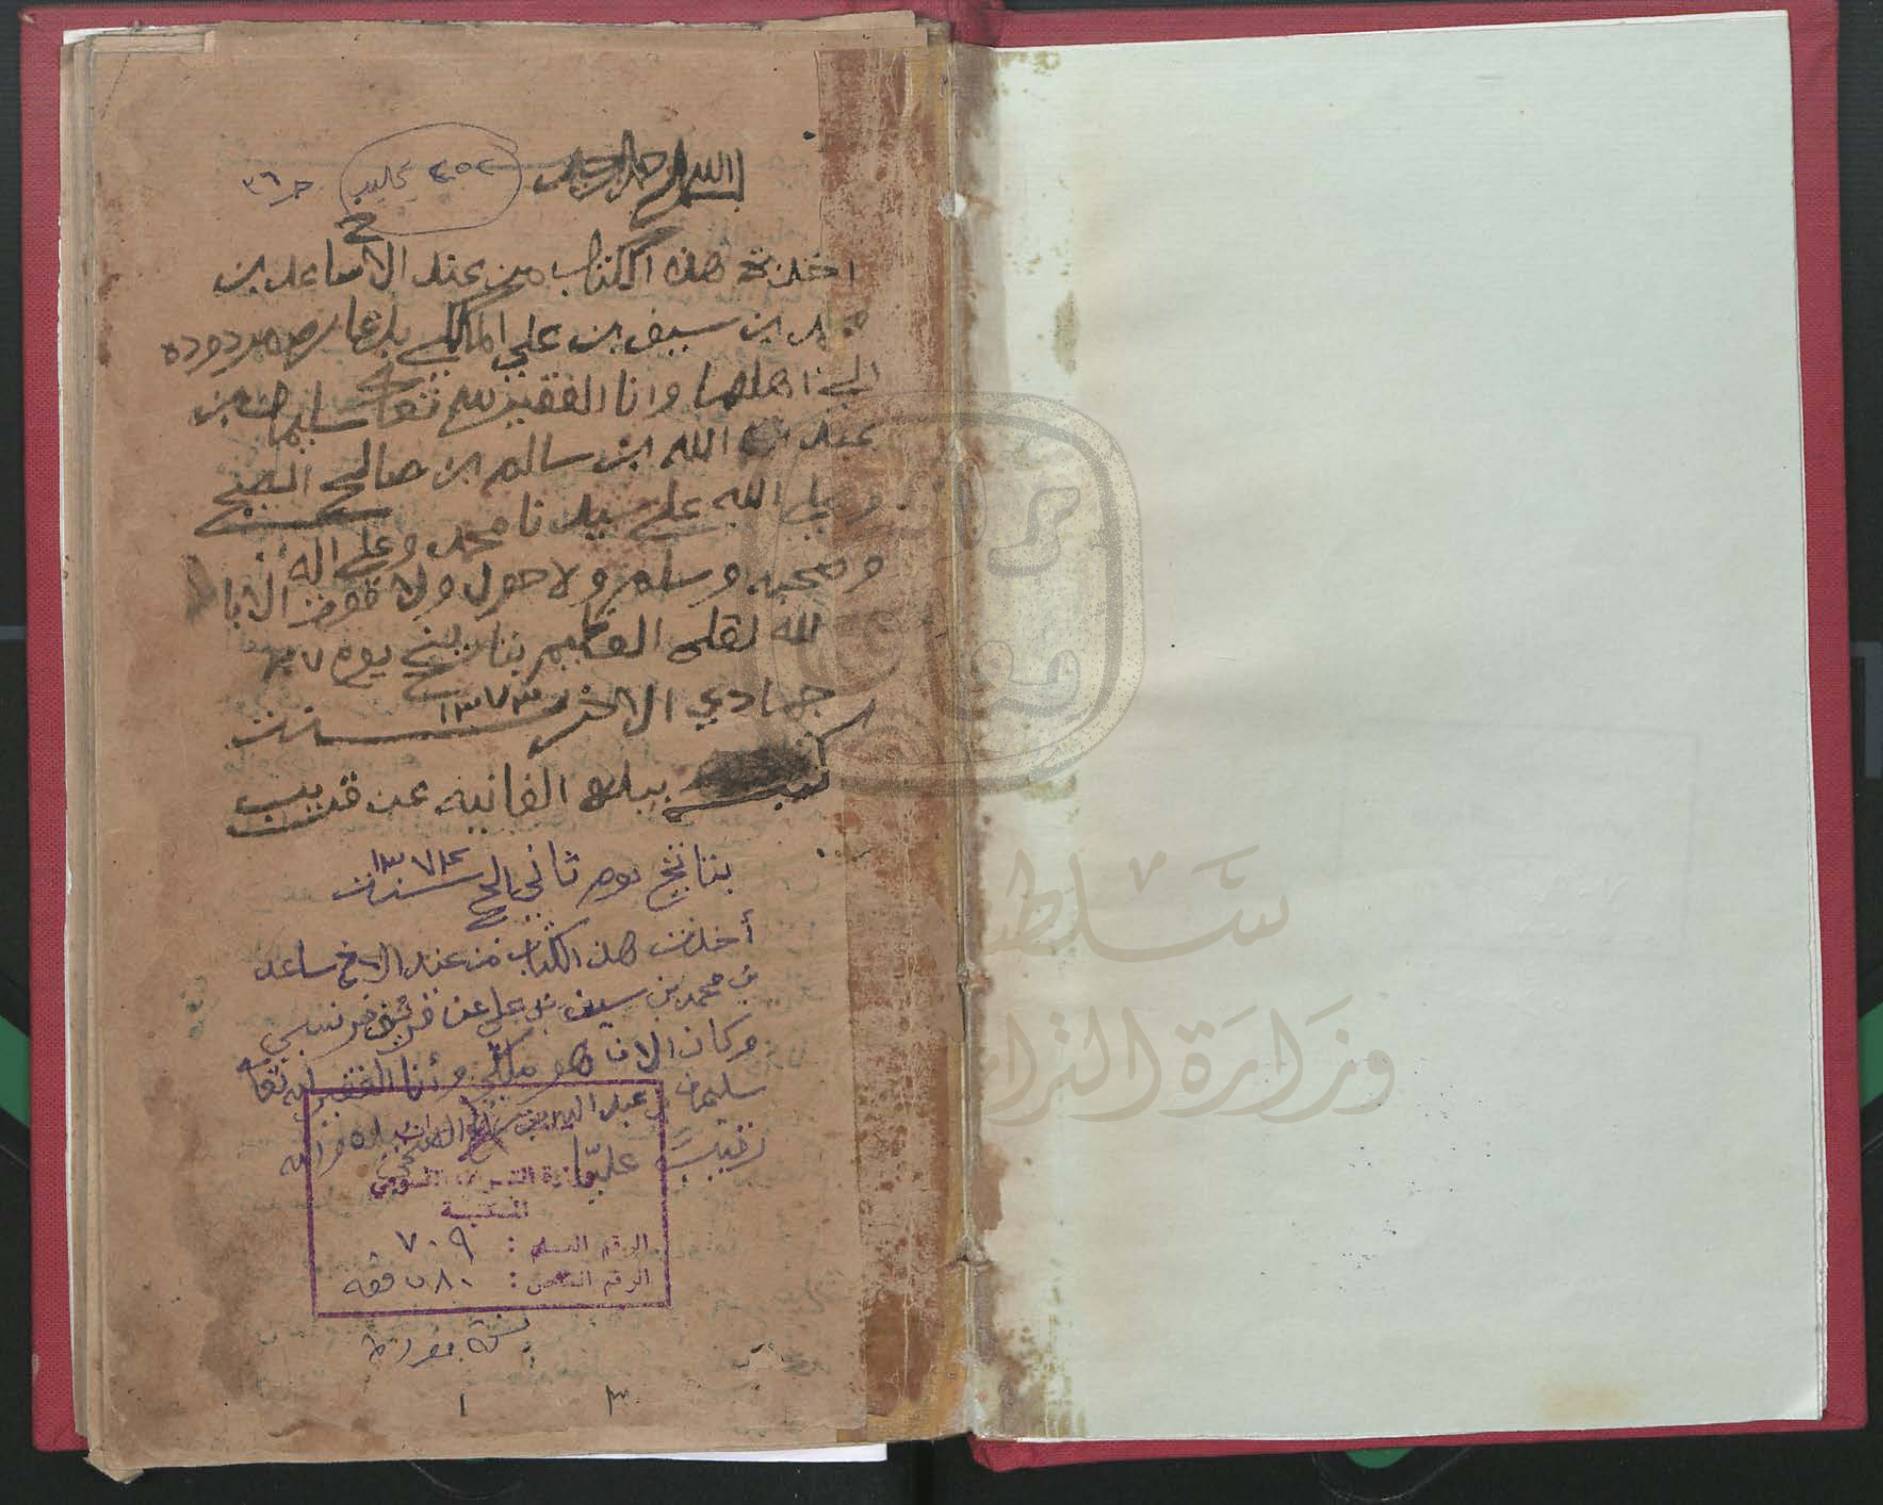 بسم الله الرحمن الرحيم
٤٥٢
ج ٣٦
اخذت هذه الكتاب من عند الاخ ساعد بن
محمد بن سيف بن علي المالكي بلعاره مردوده
الى اهلها وانا الفقير لله تعالى سليمان بن
عبد الله ابن سالم ابن صالح
وصلى الله على سيدنا محمد وعلى اله
وصحبه وسلم ولا حول ولا قوة الا با
لله لعلي العظيم بتاريخ يوم ٢٧
جمادي الاخر سنت ١٣٧٣
كتبه بيده الفانيه عن قريب
بتاريخ يوم ثاني الحج سنت ١٣٧٤
أخذت هذ الكتاب من عند الاخ ساعد
بن محمد بن سيف بن علي عن قرشين فرنسي
وكان الان هو ملكي وأنا الفقير لله تعالى
سليمان بن عبد الله بن بيده
عليها
وزارة التراث القومي
المكتبة
الرقم العام : ٧٠٩
الرقم الخاص : ٨٠ ب فقه
نسخة
١ ٣
سلطنة
وزارة التراث